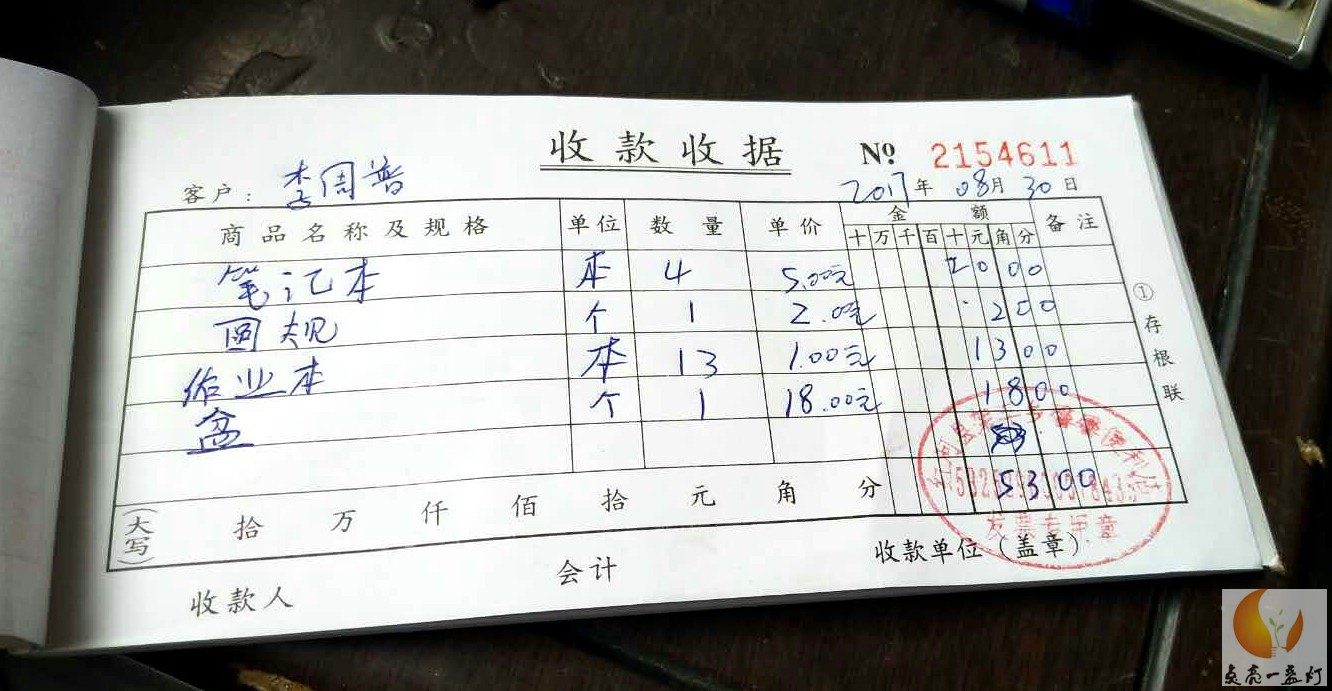 收款收据 № 2154611
客户: 李周普 2017年 08月 30日
商品名称及规格 单位 数量 单价 金额 备注
十 万 千 百 十 元 角 分
笔记本 本 4 5.00元 2000
圆规 个 1 2.00元 200
作业本 本 13 1.00元 1300
盆 个 1 18.00元 1800
5300
(大写) 拾 万 仟 佰 拾 元 角 分
收款人 会计 收款单位(盖章)
①存根联
发票专用章
点亮一盏灯